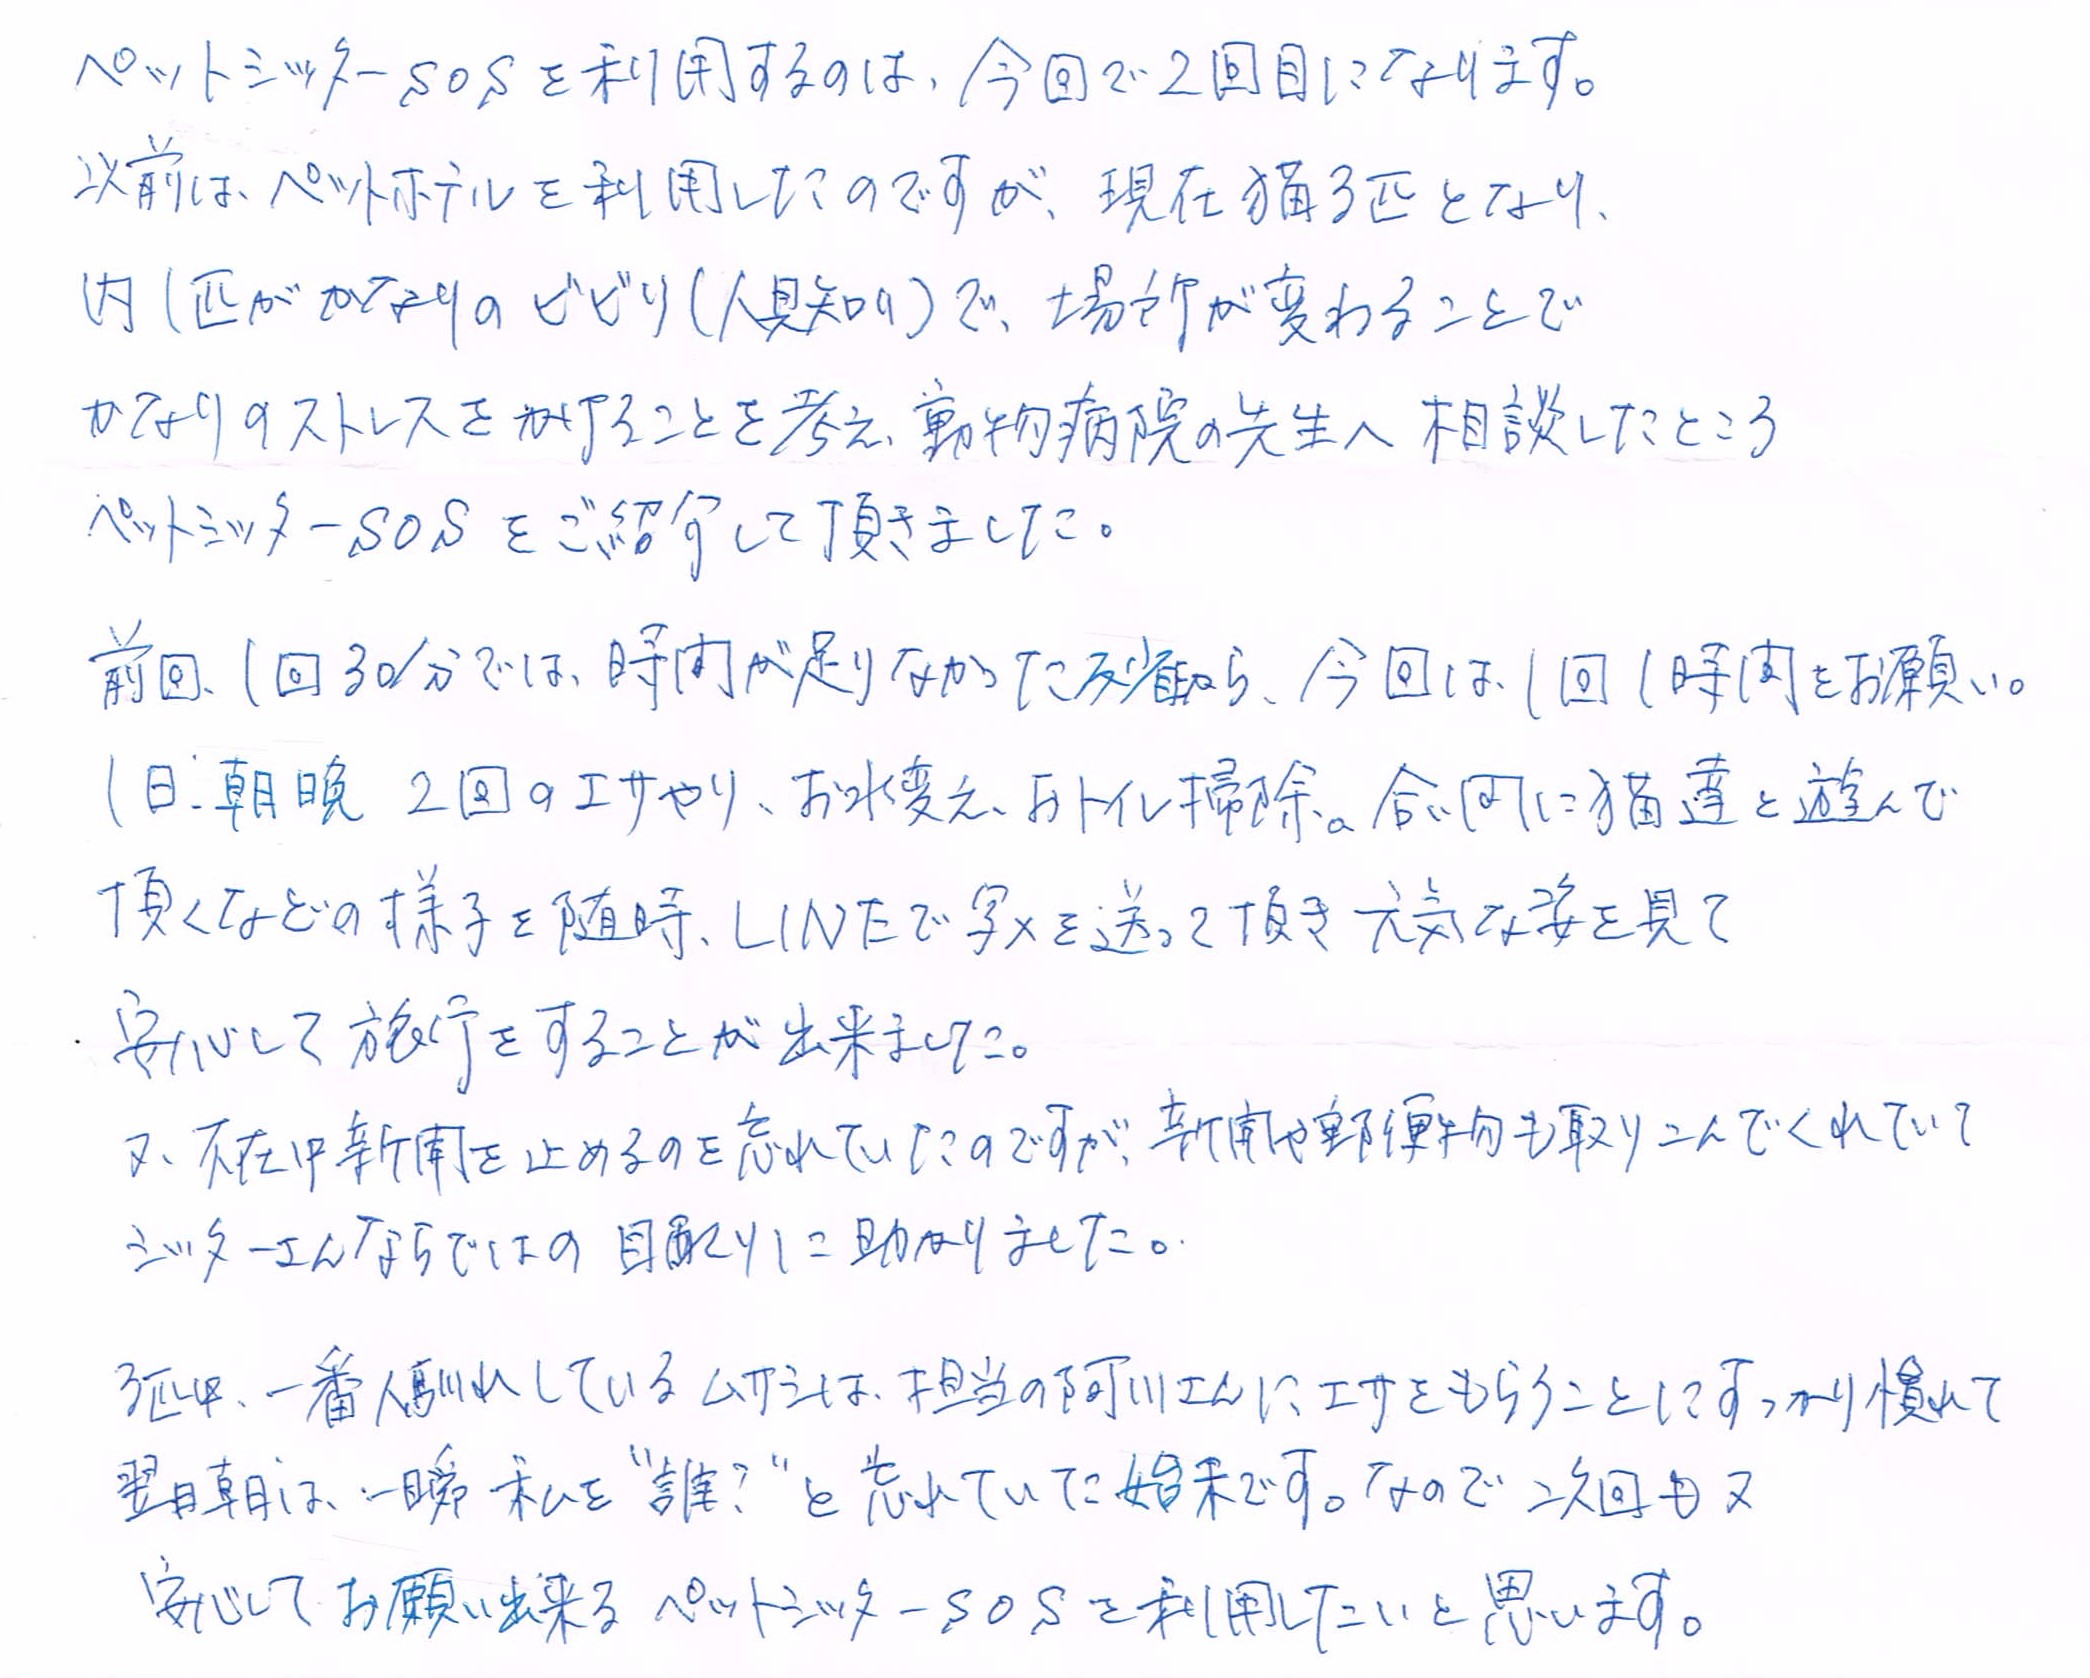 ペットシッターSOSを利用するのは、今回で2回目になります。
以前は、ペットホテルを利用したのですが、現在猫3匹となり、
内1匹がかなりのビビリ(人見知り)で、場所が変わることで
かなりのストレスをかけることを考え、動物病院の先生へ相談したところ
ペットシッターSOSをご紹介して頂きました。
前回、1回30分では、時間が足りなかった反省から、今回は、1回1時間をお願い。
1日:朝晩 2回のエサやり、お水変え、おトイレ掃除。合い間に猫達と遊んで
頂くなどの様子を随時、LINEで写メを送って頂き元気な姿を見て
安心して旅行をすることが出来ました。
又、不在中新聞を止めるのを忘れていたのですが、新聞や郵便物も取りこんでくれていて
シッターさんならではの目配りに助かりました。
3匹中、一番人馴れしているムサシは、担当の阿川さんにエサをもらうことにすっかり慣れて
翌日朝は、一瞬私を"誰?"と忘れていた始末です。なので次回も又
安心してお願い出来るペットシッターSOSを利用したいと思います。